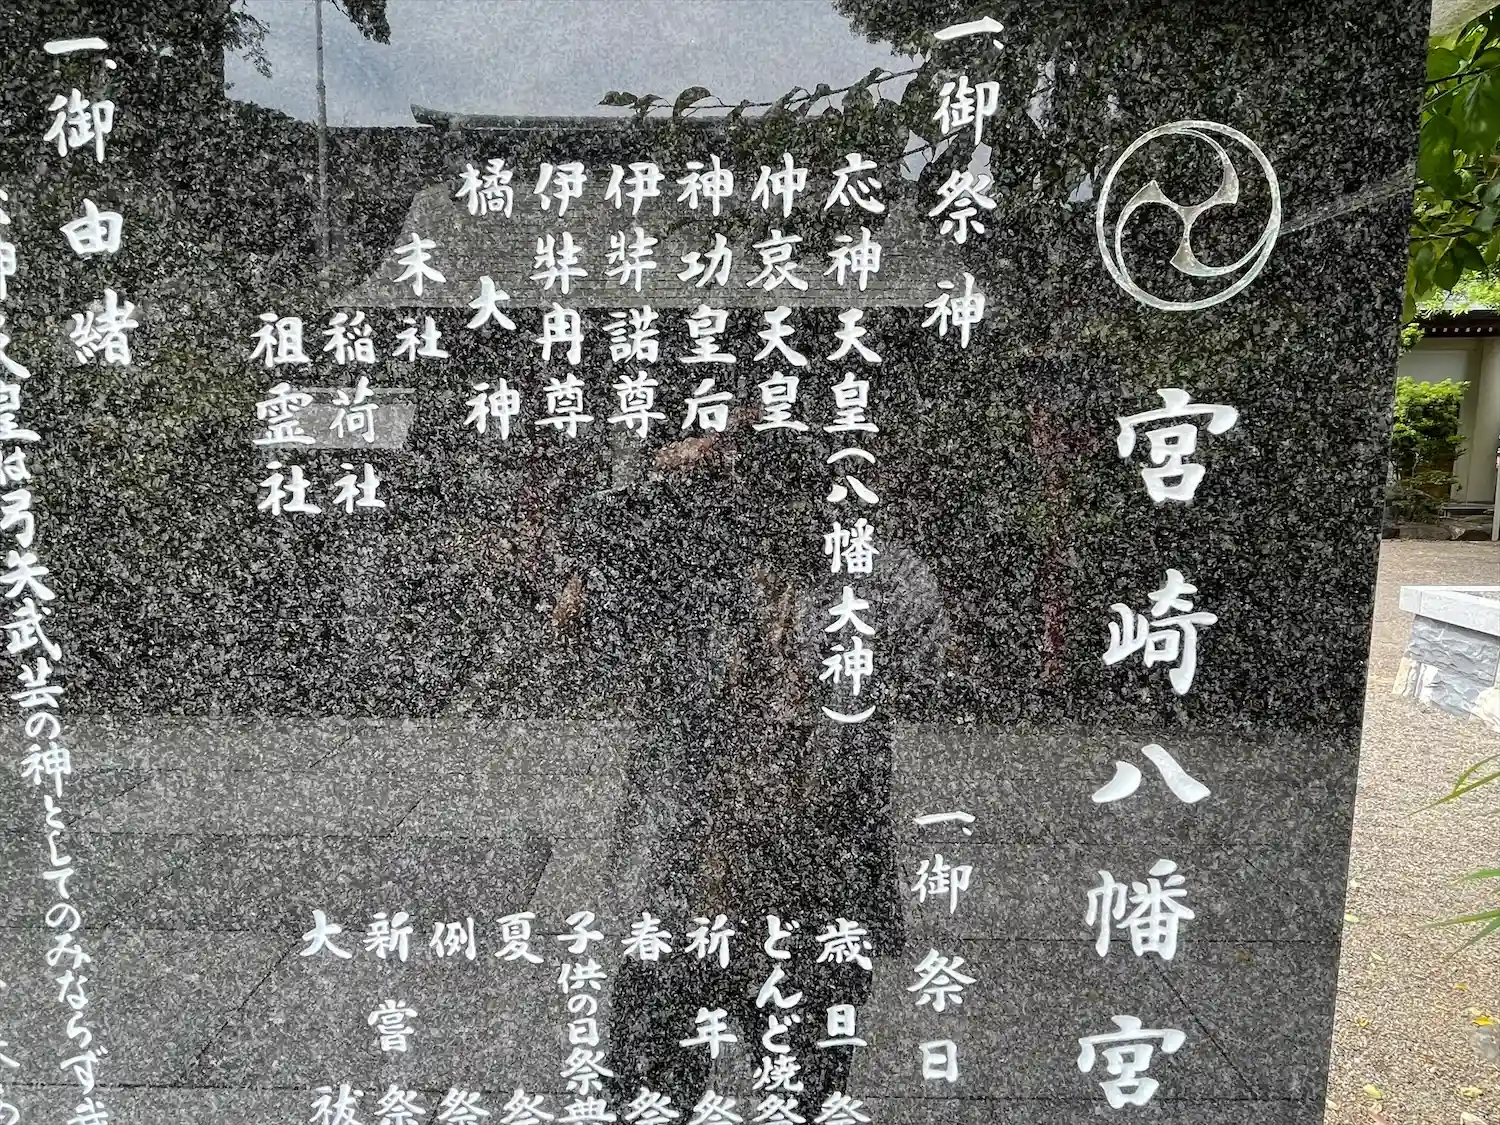 宮崎八幡宮
一、御祭神
応神天皇(八幡大神)
仲哀天皇
神功皇后
伊弉諾尊
伊弉冉尊
橘大神
末社
稲荷社
祖霊社
一、御祭日
歳旦祭
どんど焼祭
祈年祭
春祭
子供の日祭典
夏祭
例祭
新嘗祭
大祓
一、御由緒
皇は弓矢武芸の神としてのみならず